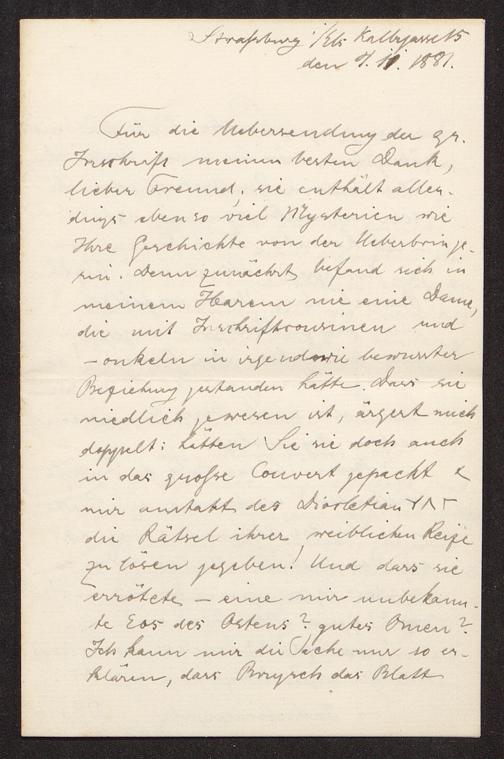 Strassburg i/Els Kalbsgasse 15
den 9. 11. 1881.
Für die Uebersendung der gr.
Inschrift meinen besten Dank,
lieber Freund. sie enthält aller-
dings ebenso viel Mysterien wie
Ihre Geschichte von der Ueberbringe-
rin. Denn zunächst befand sich in
meinem Harem nie eine Dame,
die mit Inschriftcousinen und
-onkeln in irgendwie bewusster
Beziehung gestanden hätte. Dass sie
niedlich gewesen ist, ärgert mich
doppelt: hätten Sie sie doch auch
in das grosse Couvert gepackt &
mir anstatt des Diocletian
die Rätsel ihrer weiblichen Reize
zu lösen gegeben! Und dass sie
errötete – eine mir unbekann-
te Eos des Ostens? gutes Omen?
Ich kann mir die Sache nur so er-
klären, dass das Blatt